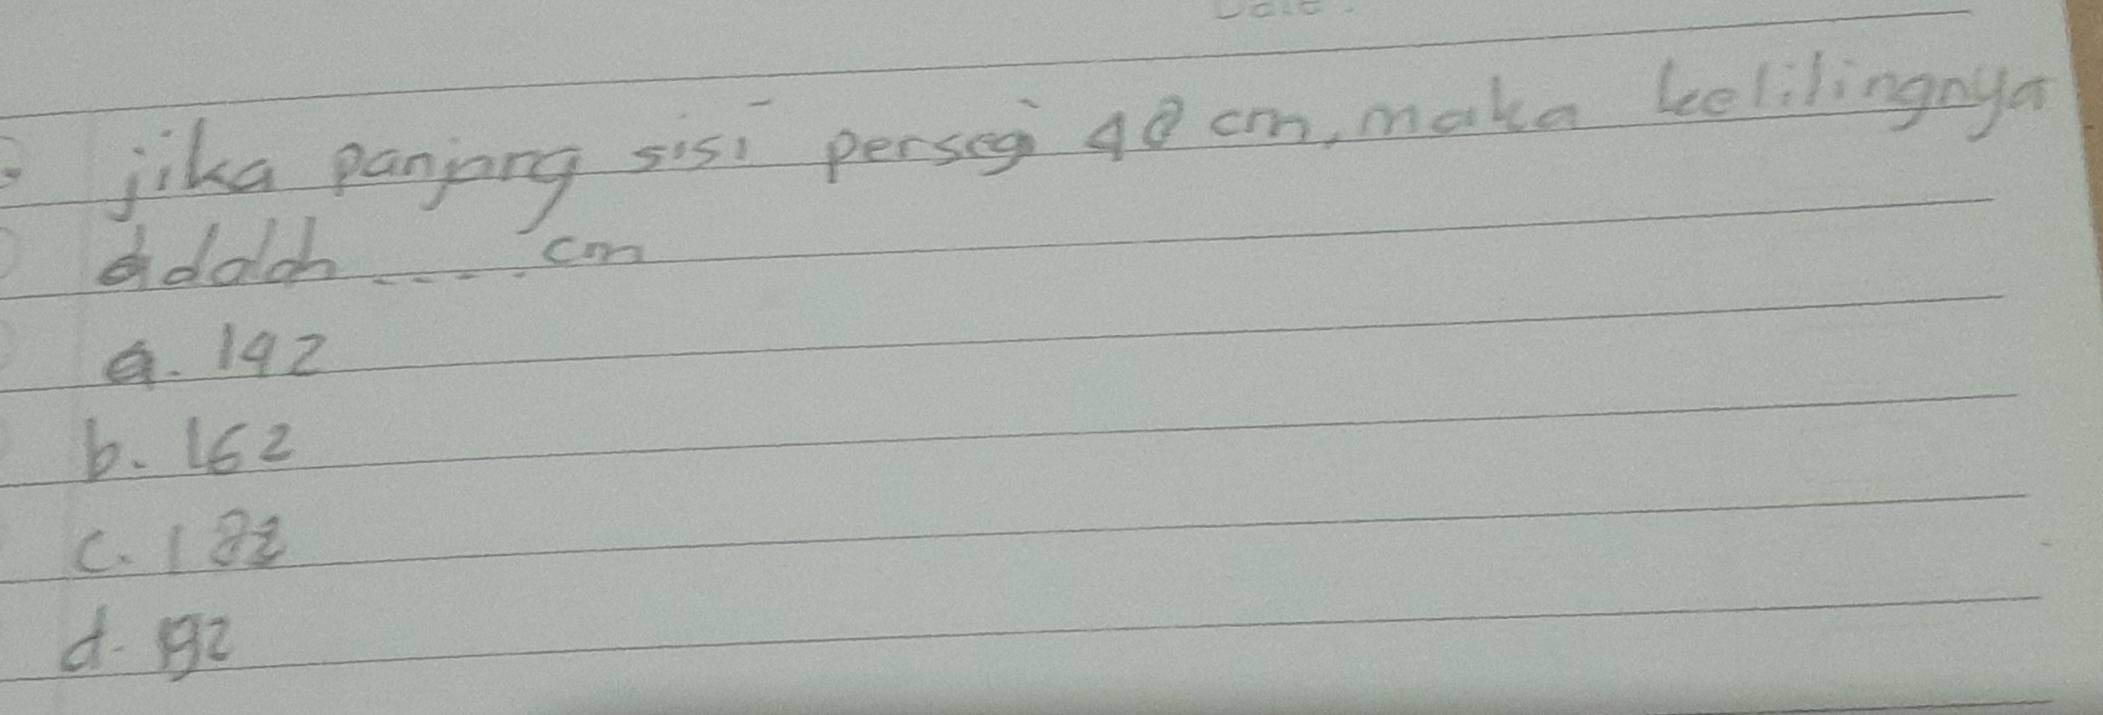 jika panjang sisi persegi 48 cm, maka kelilingnya
adalah ..... cm
a. 142
b. 162
c. 182
d. 192